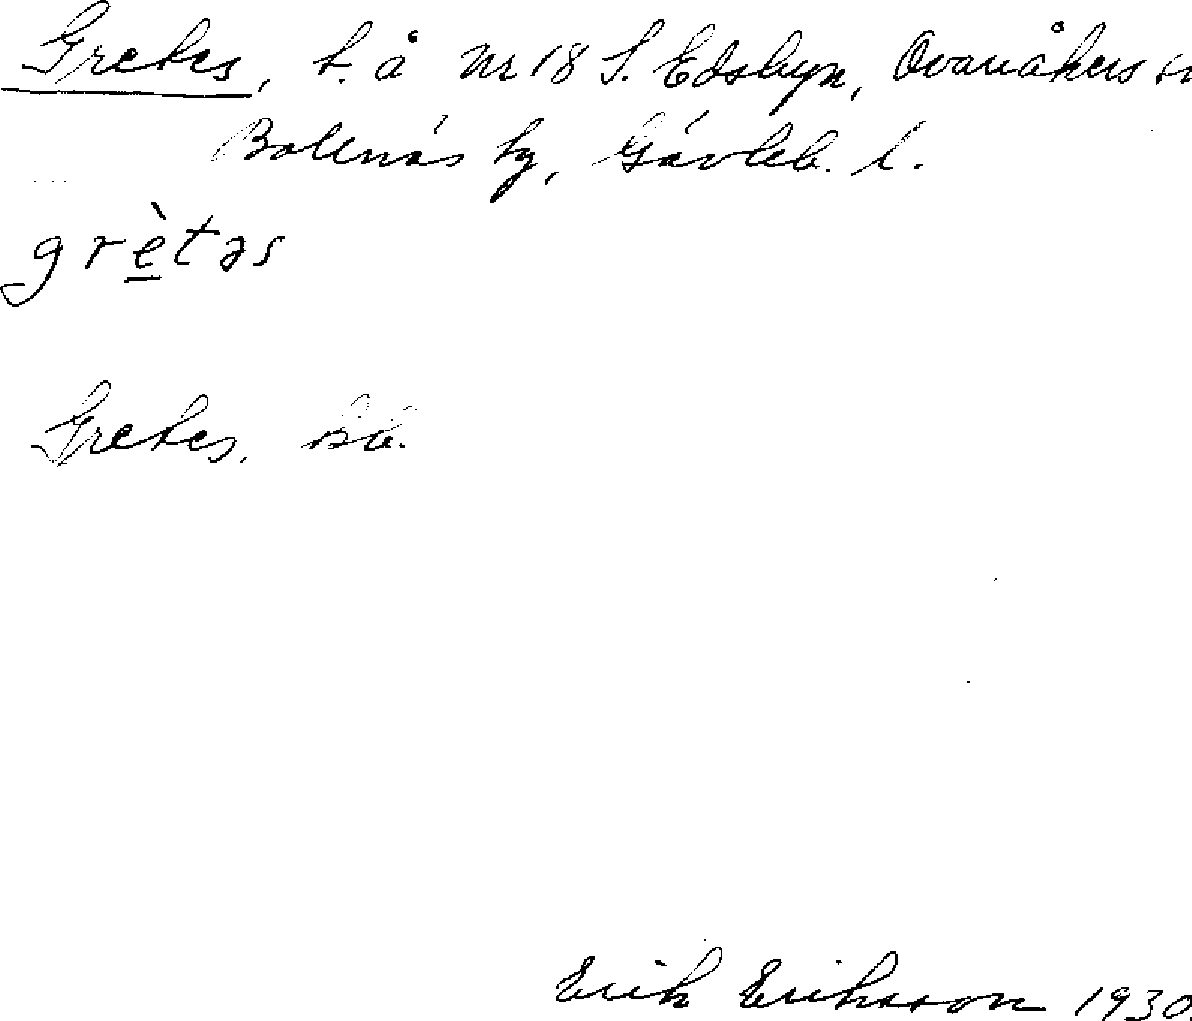 Gretes, t. å nr 18 S. Edsbyn, Ovanåkers sn
Bollnäs tg, Gävleb. l.
grètəs
Gretes,
Erik Eriksson 1930.